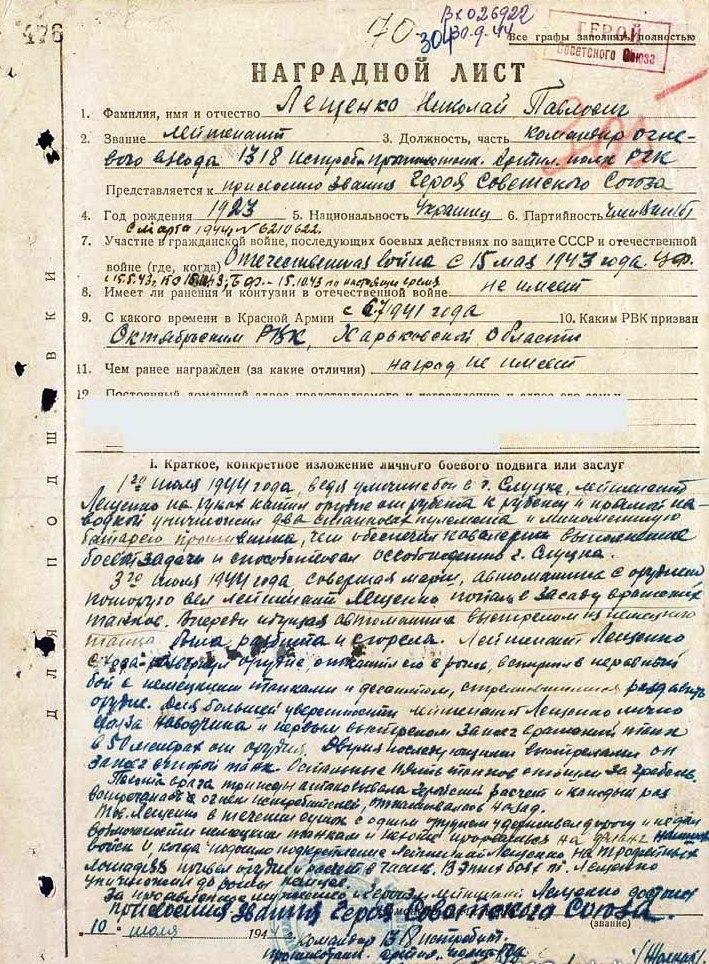 476
70
Вх 026922
304 30.9.44
Все графы заполнять полностью
ГЕРОЙ
Советского Союза
НАГРАДНОЙ ЛИСТ
1. Фамилия, имя и отчество Лещенко Николай Павлович
2. Звание лейтенант 3. Должность, часть командир огне-
вого взвода 1318 истреб. противотанк. артил. полк РГК
Представляется к присвоению звания Героя Советского Союза
4. Год рождения 1923 5. Национальность Украинец 6. Партийность член ВКП(б)
с марта 1944 г. № 6210622.
7. Участие в гражданской войне, последующих боевых действиях по защите СССР и отечественной
войне (где, когда) Отечественная война с 15 мая 1943 года. Ц.ф.
с 15.5.43, по 15.10.43, Б.ф. - 15.10.43 по настоящее время
8. Имеет ли ранения и контузии в отечественной войне не имеет
9. С какого времени в Красной Армии с 1941 года 10. Каким РВК призван
Октябрьским РВК, Харьковской области
11. Чем ранее награжден (за какие отличия) наград не имеет
12. Постоянный домашний адрес представляемого к награждению и адрес его семьи
I. Краткое, конкретное изложение личного боевого подвига или заслуг
1го июля 1944 года, ведя уличные бои в г. Слуцке, лейтенант
Лещенко на руках катил орудие от рубежа к рубежу и прямой на-
водкой уничтожил два станковых пулемета и минометную
батарею противника, чем обеспечил кавалерии выполнение
боевой задачи и способствовал освобождению г. Слуцка.
3го июля 1944 года совершая марш, автомашина с орудием
которую вел лейтенант Лещенко попала в засаду вражеских
танков. Впереди идущая автомашина выстрелом из немецкого
танка была разбита и сгорела. Лейтенант Лещенко
с хода развернул орудие, откатил его в рожь, вступил в неравный
бой с немецкими танками и десантом, стремившимся раздавить
орудие. Для большей уверенности лейтенант Лещенко лично
стал за наводчика и первым выстрелом зажег вражеский танк
в 50 метрах от орудия. Двумя последующими выстрелами он
зажег второй танк. Остальные пять танков отошли за гребень.
Пехота врага трижды атаковывала геройский расчет и каждый раз
встречаемая огнем истребителей, откатывалась назад.
Тов. Лещенко в течении суток с одним орудием удерживал дорогу и не дал
возможности немецким танкам и пехоте прорваться на фланг наших
войск и, когда подошло подкрепление лейтенант Лещенко на трофейных
лошадях привел орудие и расчет в часть. В этом бою т. Лещенко
уничтожил до роты немцев.
За проявленные мужество и героизм лейтенант Лещенко достоин
присвоения звания Героя Советского Союза.
(звание)
10 июля 1944
Командир 1318 истребит.
противотанк. артил. полка РГК
ДЛЯ ПОДШИВКИ